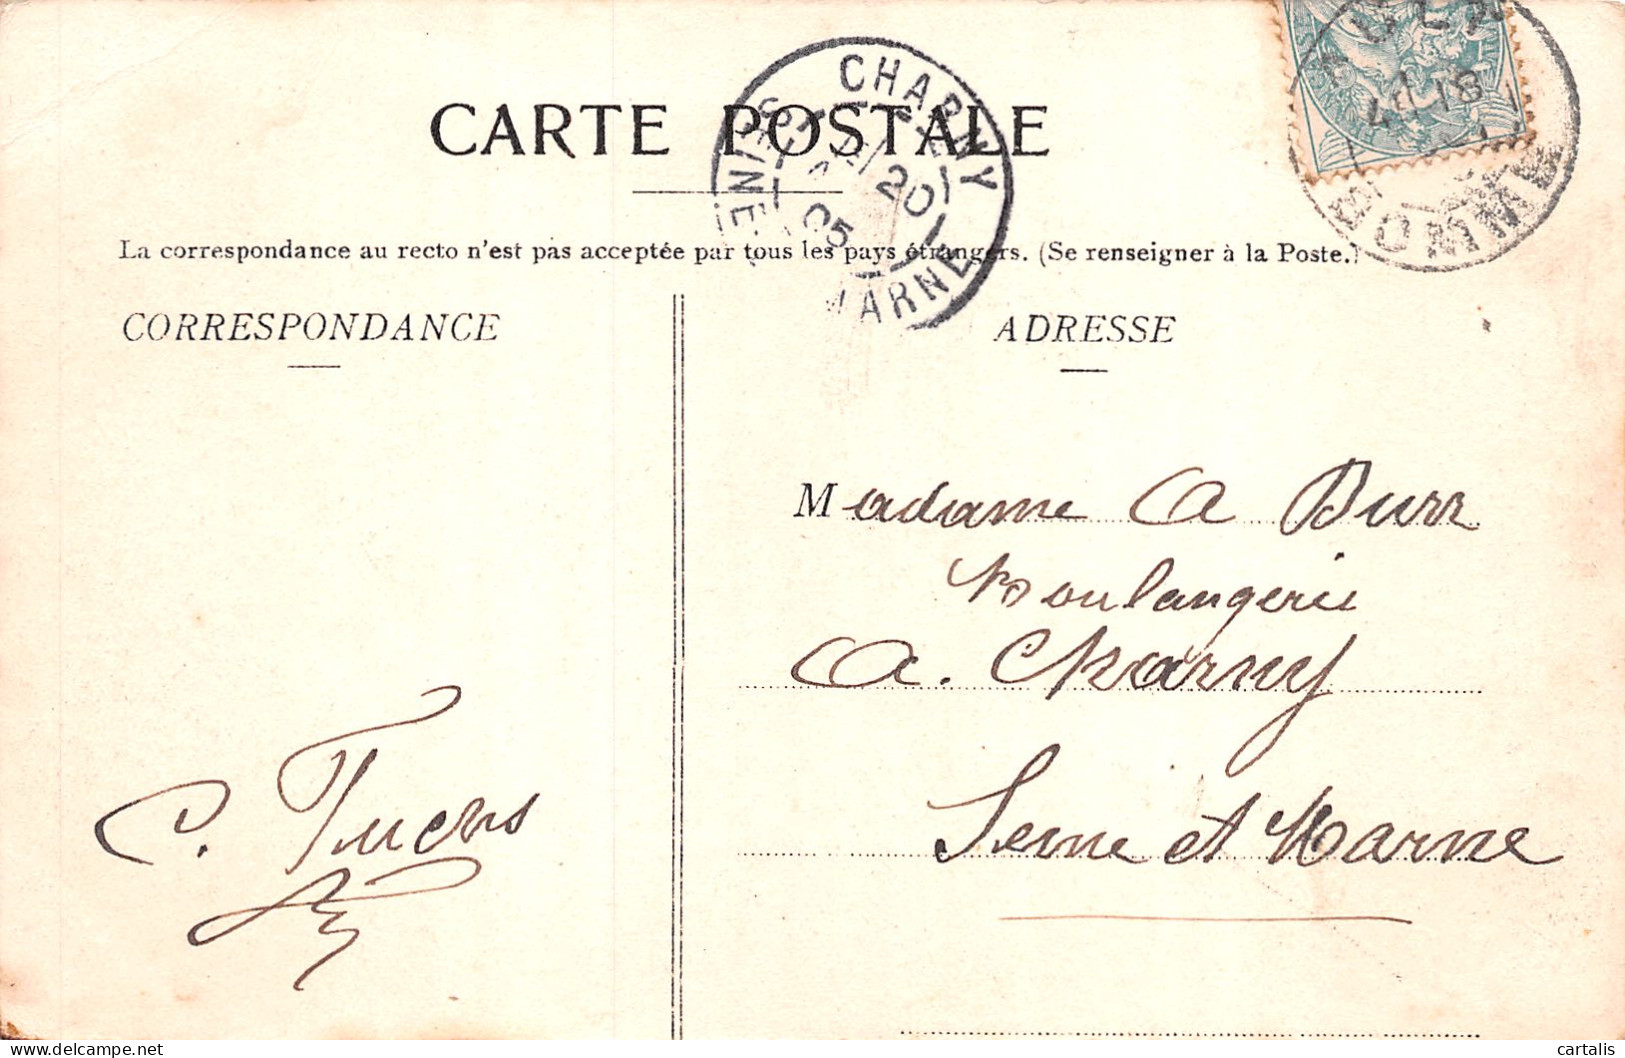 CARTE POSTALE
CHARNY
20
05
SEINE-ET-MARNE
La correspondance au recto n'est pas acceptée par tous les pays étrangers. (Se renseigner à la Poste.)
CORRESPONDANCE
ADRESSE
Madame A Burr
Boulangerie
A. Charny
Seine et Marne
C.
cartalis
delcampe.net